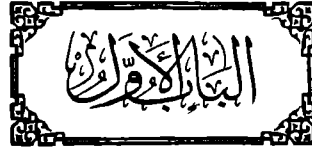 الباب الأول